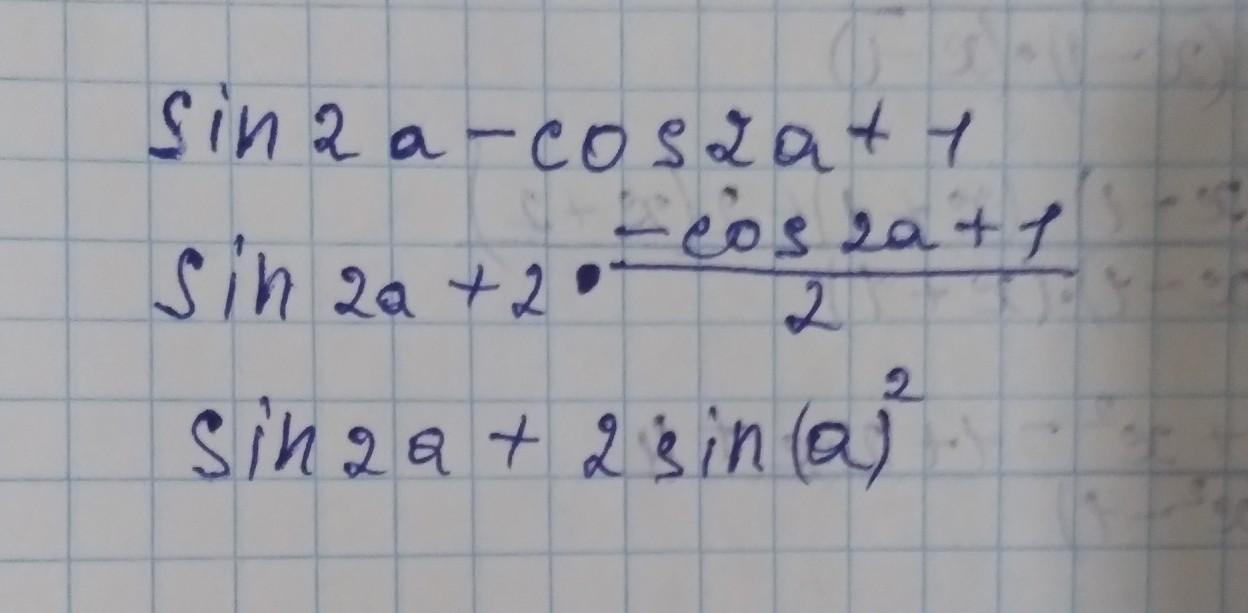 sin 2a - cos 2a + 1
sin 2a + 2 • (-cos 2a + 1)/2
sin 2a + 2 sin(a)²